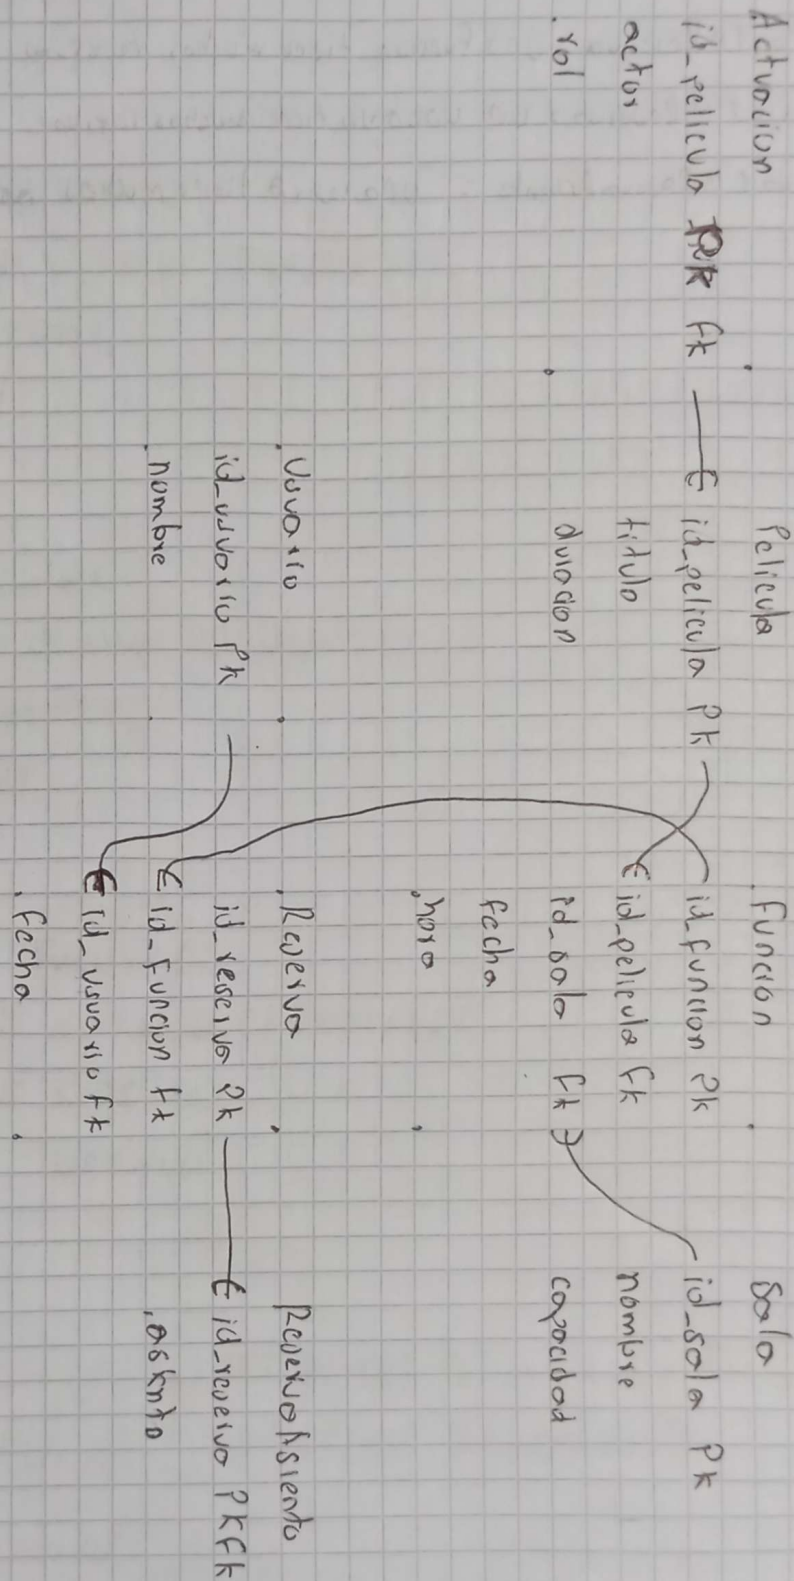 Actuacion
id_pelicula PK fk
actor
rol
Pelicula
id_pelicula PK
titulo
duracion
Funcion
id_funcion PK
id_pelicula fk
id_sala fk
fecha
hora
Sala
id_sala PK
nombre
capacidad
Usuario
id_usuario PK
nombre
Reserva
id_reserva PK
id_funcion fk
id_usuario fk
fecha
ReservaAsiento
id_reserva PK fk
asiento